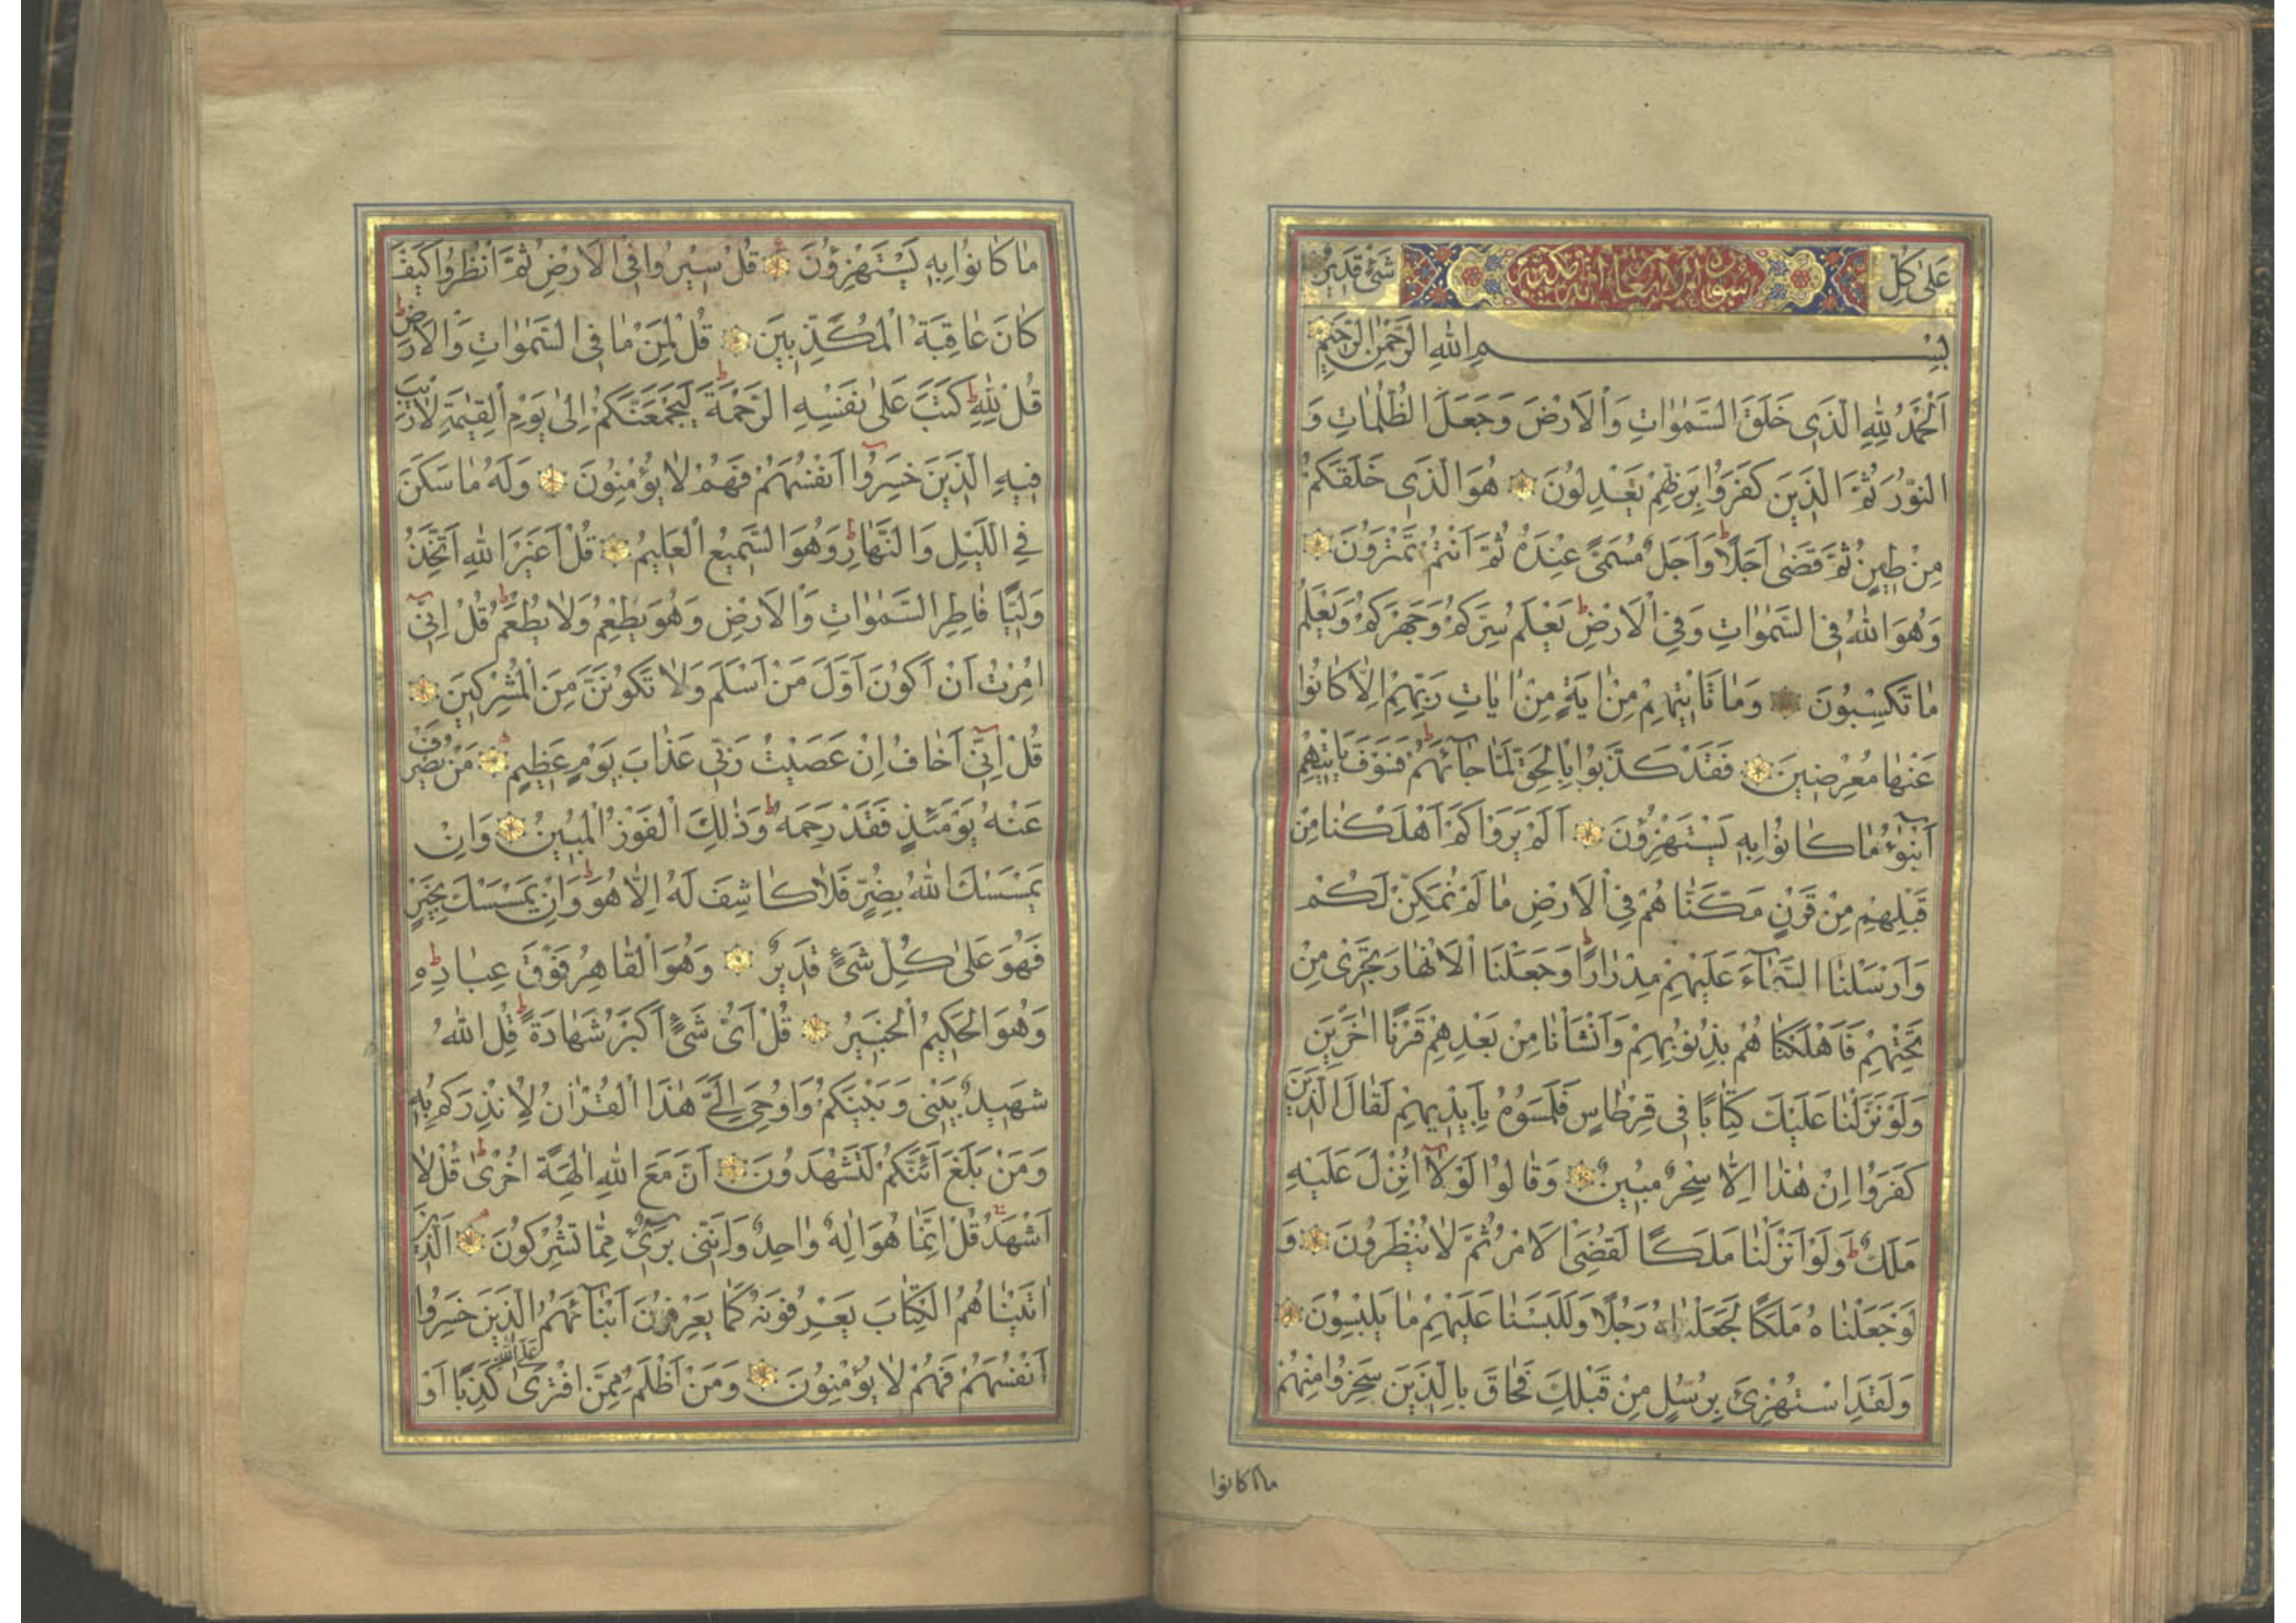 عَلٰى كُلِّ سُورَةُ الْاَنْعَامِ مَكِّيَّة شَىْءٍ قَدِيرٌ
بِسْمِ اللهِ الرَّحْمٰنِ الرَّحِيمِ
اَلْحَمْدُ لِلهِ الَّذِى خَلَقَ السَّمٰوَاتِ وَالْاَرْضَ وَجَعَلَ الظُّلُمَاتِ وَ
النُّوْرَ ثُمَّ الَّذِينَ كَفَرُوا بِرَبِّهِمْ يَعْدِلُونَ هُوَ الَّذِى خَلَقَكُمْ
مِنْ طِينٍ ثُمَّ قَضٰى اَجَلًا وَاَجَلٌ مُسَمًّى عِنْدَهُ ثُمَّ اَنْتُمْ تَمْتَرُونَ
وَهُوَ اللهُ فِى السَّمٰوَاتِ وَفِى الْاَرْضِ يَعْلَمُ سِرَّكُمْ وَجَهْرَكُمْ وَيَعْلَمُ
مَا تَكْسِبُونَ وَمَا تَأْتِيهِمْ مِنْ اٰيَةٍ مِنْ اٰيَاتِ رَبِّهِمْ اِلَّا كَانُوا
عَنْهَا مُعْرِضِينَ فَقَدْ كَذَّبُوا بِالْحَقِّ لَمَّا جَآئَهُمْ فَسَوْفَ يَأْتِيهِمْ
اَنْبٰٓؤُا مَا كَانُوا بِهِ يَسْتَهْزِؤُنَ اَلَمْ يَرَوْا كَمْ اَهْلَكْنَا مِنْ
قَبْلِهِمْ مِنْ قَرْنٍ مَكَّنَّا هُمْ فِى الْاَرْضِ مَا لَمْ نُمَكِّنْ لَكُمْ
وَاَرْسَلْنَا السَّمَآءَ عَلَيْهِمْ مِدْرَارًا وَجَعَلْنَا الْاَنْهَارَ تَجْرِى مِنْ
تَحْتِهِمْ فَاَهْلَكْنَا هُمْ بِذُنُوبِهِمْ وَاَنْشَأْنَا مِنْ بَعْدِهِمْ قَرْنًا اٰخَرِينَ
وَلَوْ نَزَّلْنَا عَلَيْكَ كِتَابًا فِى قِرْطَاسٍ فَلَمَسُوهُ بِاَيْدِيهِمْ لَقَالَ الَّذِينَ
كَفَرُوا اِنْ هٰذَا اِلَّا سِحْرٌ مُبِينٌ وَقَالُوا لَوْلَا اُنْزِلَ عَلَيْهِ
مَلَكٌ وَلَوْ اَنْزَلْنَا مَلَكًا لَقُضِىَ الْاَمْرُ ثُمَّ لَا يُنْظَرُونَ وَ
لَوْ جَعَلْنَا هُ مَلَكًا لَجَعَلْنَاهُ رَجُلًا وَلَلَبَسْنَا عَلَيْهِمْ مَا يَلْبِسُونَ
وَلَقَدِ اسْتُهْزِئَ بِرُسُلٍ مِنْ قَبْلِكَ فَحَاقَ بِالَّذِينَ سَخِرُوا مِنْهُمْ
ما كانوا
مَا كَانُوا بِهِ يَسْتَهْزِؤُنَ قُلْ سِيرُوا فِى الْاَرْضِ ثُمَّ انْظُرُوا كَيْفَ
كَانَ عَاقِبَةُ الْمُكَذِّبِينَ قُلْ لِمَنْ مَا فِى السَّمٰوَاتِ وَالْاَرْضِ
قُلْ لِلهِ كَتَبَ عَلٰى نَفْسِهِ الرَّحْمَةَ لَيَجْمَعَنَّكُمْ اِلٰى يَوْمِ الْقِيٰمَةِ لَا رَيْبَ
فِيهِ الَّذِينَ خَسِرُوا اَنْفُسَهُمْ فَهُمْ لَا يُؤْمِنُونَ وَلَهُ مَا سَكَنَ
فِى اللَّيْلِ وَالنَّهَارِ وَهُوَ السَّمِيعُ الْعَلِيمُ قُلْ اَغَيْرَ اللهِ اَتَّخِذُ
وَلِيًّا فَاطِرِ السَّمٰوَاتِ وَالْاَرْضِ وَهُوَ يُطْعِمُ وَلَا يُطْعَمُ قُلْ اِنِّى
اُمِرْتُ اَنْ اَكُونَ اَوَّلَ مَنْ اَسْلَمَ وَلَا تَكُونَنَّ مِنَ الْمُشْرِكِينَ
قُلْ اِنِّى اَخَافُ اِنْ عَصَيْتُ رَبِّى عَذَابَ يَوْمٍ عَظِيمٍ مَنْ يُصْرَفْ
عَنْهُ يَوْمَئِذٍ فَقَدْ رَحِمَهُ وَذٰلِكَ الْفَوْزُ الْمُبِينُ وَاِنْ
يَمْسَسْكَ اللهُ بِضُرٍّ فَلَا كَاشِفَ لَهُ اِلَّا هُوَ وَاِنْ يَمْسَسْكَ بِخَيْرٍ
فَهُوَ عَلٰى كُلِّ شَىْءٍ قَدِيرٌ وَهُوَ الْقَاهِرُ فَوْقَ عِبَادِهِ
وَهُوَ الْحَكِيمُ الْخَبِيرُ قُلْ اَىُّ شَىْءٍ اَكْبَرُ شَهَادَةً قُلِ اللهُ
شَهِيدٌ بَيْنِى وَبَيْنَكُمْ وَاُوحِىَ اِلَىَّ هٰذَا الْقُرْاٰنُ لِاُنْذِرَكُمْ بِهِ
وَمَنْ بَلَغَ اَئِنَّكُمْ لَتَشْهَدُونَ اَنَّ مَعَ اللهِ اٰلِهَةً اُخْرٰى قُلْ لَا
اَشْهَدُ قُلْ اِنَّمَا هُوَ اِلٰهٌ وَاحِدٌ وَاِنَّنِى بَرِىءٌ مِمَّا تُشْرِكُونَ اَلَّذِينَ
اٰتَيْنَا هُمُ الْكِتَابَ يَعْرِفُونَهُ كَمَا يَعْرِفُونَ اَبْنَآئَهُمُ الَّذِينَ خَسِرُوا
اَنْفُسَهُمْ فَهُمْ لَا يُؤْمِنُونَ وَمَنْ اَظْلَمُ مِمَّنِ افْتَرٰى عَلَى اللهِ كَذِبًا اَوْ